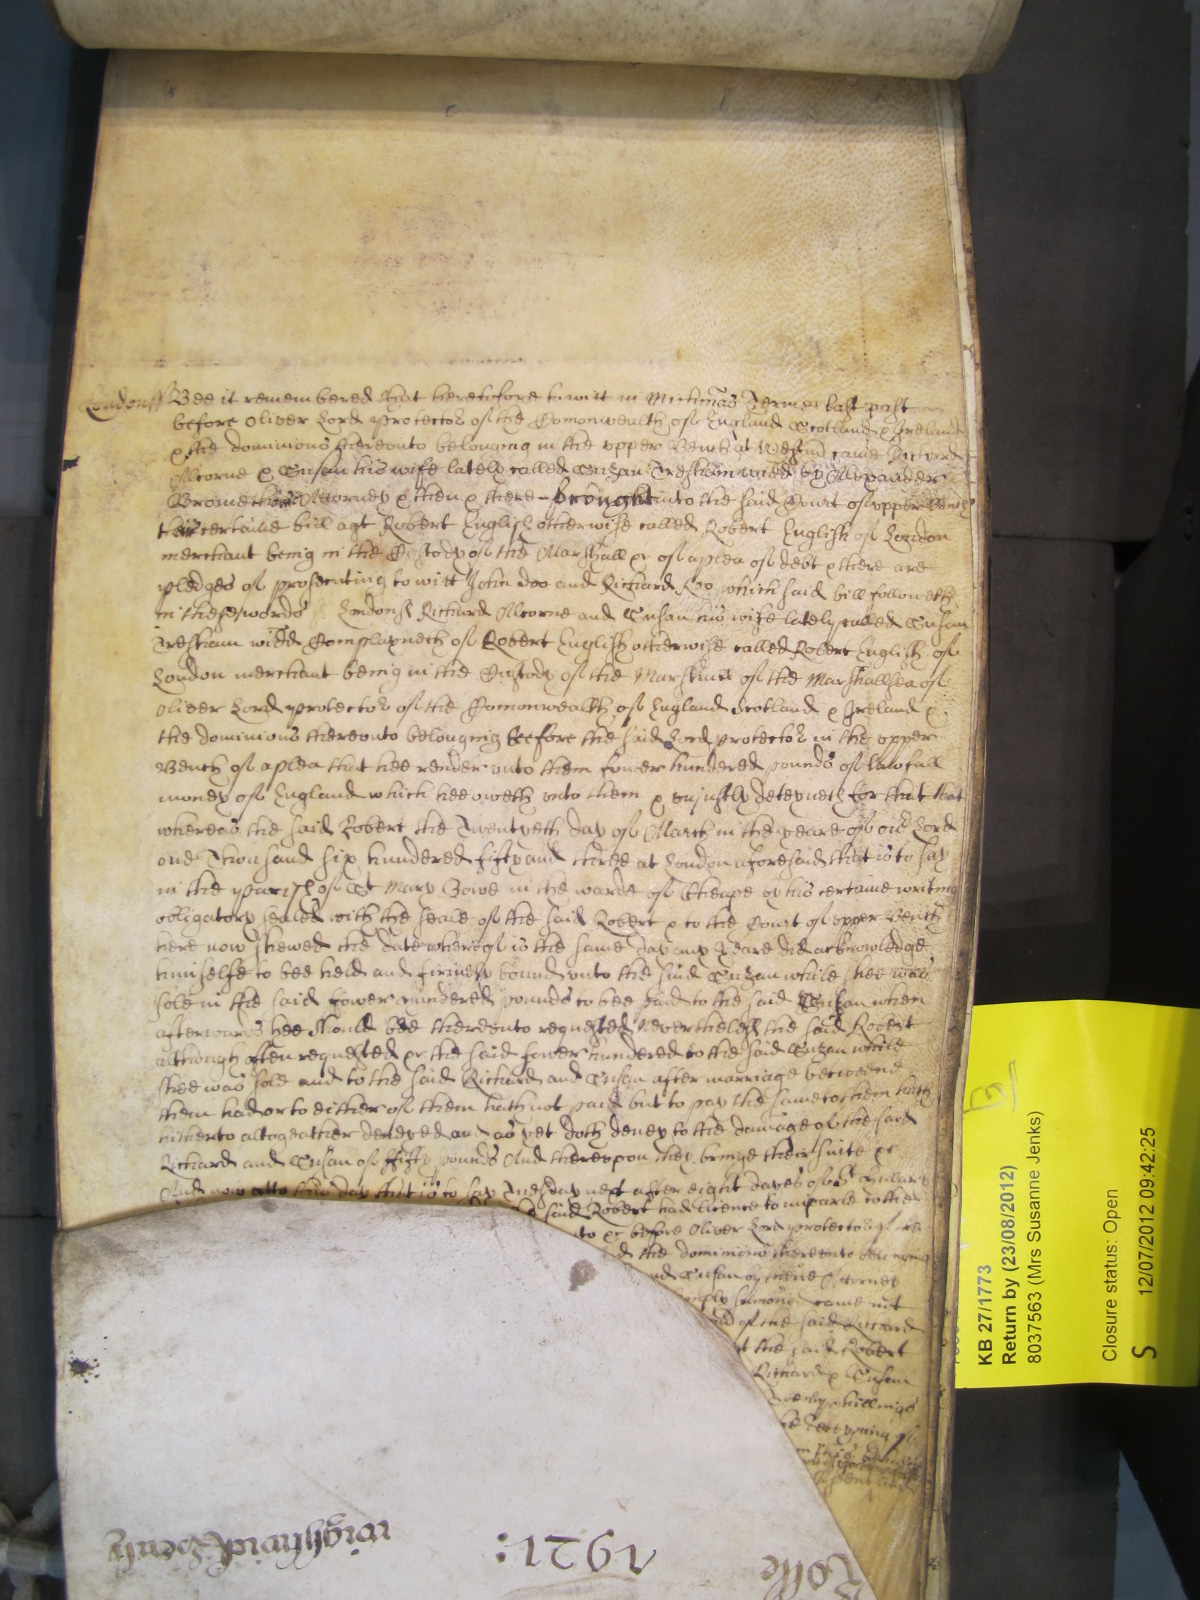 London ss Bee it remembered that heretofore to witt in Michas Terme last past
before Oliver Lord Protector of the Comonwealth of England Scotland & Ireland
& the dominions thereunto belonging in the upper Bench at Westm came Richard
Alcorne & Susan his wife lately called Suzan Treskam widd by Alexander
Attorney & then & there brought into the said Court of upper Bench
certaine bill agt Robert English otherwise called Robert English of London
merchant being in the Custody of the Marshall &c of a plea of debt & there are
pledges of prosecuting to witt John Doo and Richard Roo which said bill followeth
in these words London ss Richard Alcorne and Susan his wife lately called Susan
Treskam widd Complayneth of Robert English otherwise called Robert English of
London merchant being in the Custody of the Marshall of the Marshallsea of
Oliver Lord Protector of the Comonwealth of England Scotland & Ireland &
the dominions thereunto belonging beefore the said Lord Protector in the upper
Bench of a plea that hee render unto them fower hundered pounds of lawfull
money of England which hee oweth unto them & unjustly deteyneth for that that
whereas the said Robert the Twentyeth day of March in the yeare of our Lord
one Thousand six hundered fifty and three at London aforesaid that is to say
in the parish of St Mary Bowe in the warde of Cheape by his certaine writing
obligatory sealed with the seale of the said Robert & to the Court of upper Bench
here now shewed the date whereof is the same day and yeare did acknowledge
himselfe to bee held and firmely bound unto the said Suzan while shee was
sole in the said fower hundered pounds to bee paid to the said Suzan when
afterwards hee should bee thereunto requested Neverthelesse the said Robert
although often requested &c the said fower hundered to the said Suzan while
shee was sole and to the said Richard and Susan after marriage betweene
them had or to either of them hath not paid but to pay the same to them hath
hitherto altogeather denyed and as yet doth deney to the damage of the said
Richard and Susan of fifty pounds And thereupon they bringe their suite &c
And now att this day that is to say Tuesday next after eight dayes of St Hillary
said Robert had licence to imparle to the
unto &c before Oliver Lord Protector of
the dominions thereunto belonging
and Susan by theire Attorney
came not
of the said Richard
the said Robert
Richard & Susan
Twenty shillings
the
KB 27/1773
Return by (23/08/2012)
8037563 (Mrs Susanne Jenks)
Closure status: Open
S 12/07/2012 09:42:25
Rolle
1921: